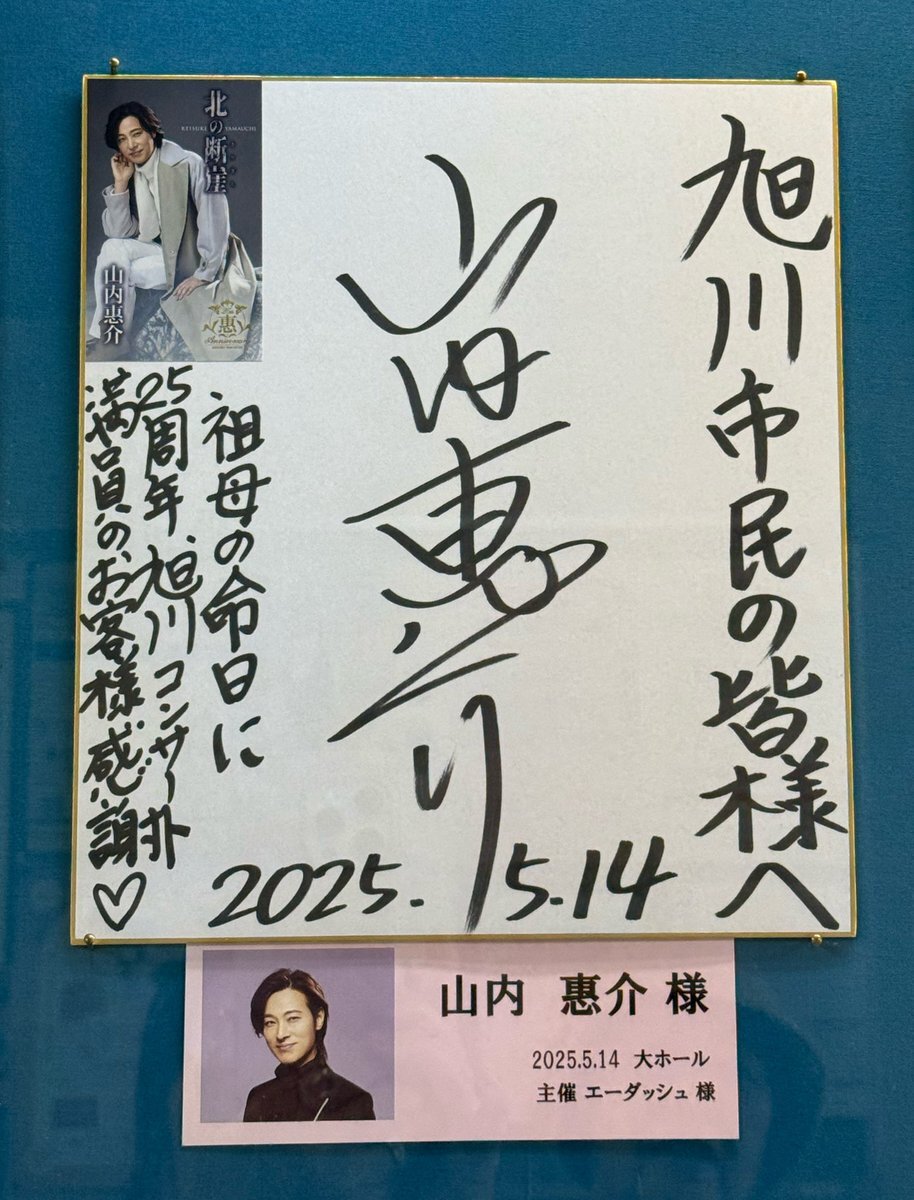 旭川市民の皆様へ
山内惠介
祖母の命日に
25周年、旭川コンサート
満員のお客様感謝♡
2025.5.14
北の断崖
KEISUKE YAMAUCHI
山内惠介
惠
山内 惠介 様
2025.5.14 大ホール
主催 エーダッシュ 様